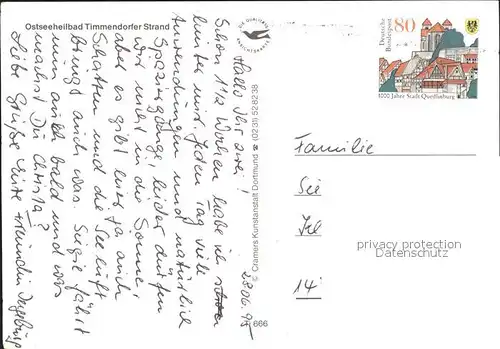 Ostseeheilbad Timmendorfer Strand
DIE QUALITÄTS
ANSICHTSKARTE
Deutsche
Bundespost
80
1000 Jahre Stadt Quedlinburg
28.06.95
Hallo Ihr zwei!
Schon 1 1/2 Wochen habe ich
hinter mir. Jeden Tag viele
Anwendungen und natürlich
Spaziergänge! Leider dürfen
wir nicht in die Sonne,
aber es gibt hier ja auch
Schatten und die Seeluft
bringt auch was. Sie fährt
nun auch bald und was
machst Du Christa?
Liebe Grüße Eure Freundin Ingeburg
© Cramers Kunstanstalt Dortmund ☎ (0231) 528238
666
Familie
privacy protection
Datenschutz
14